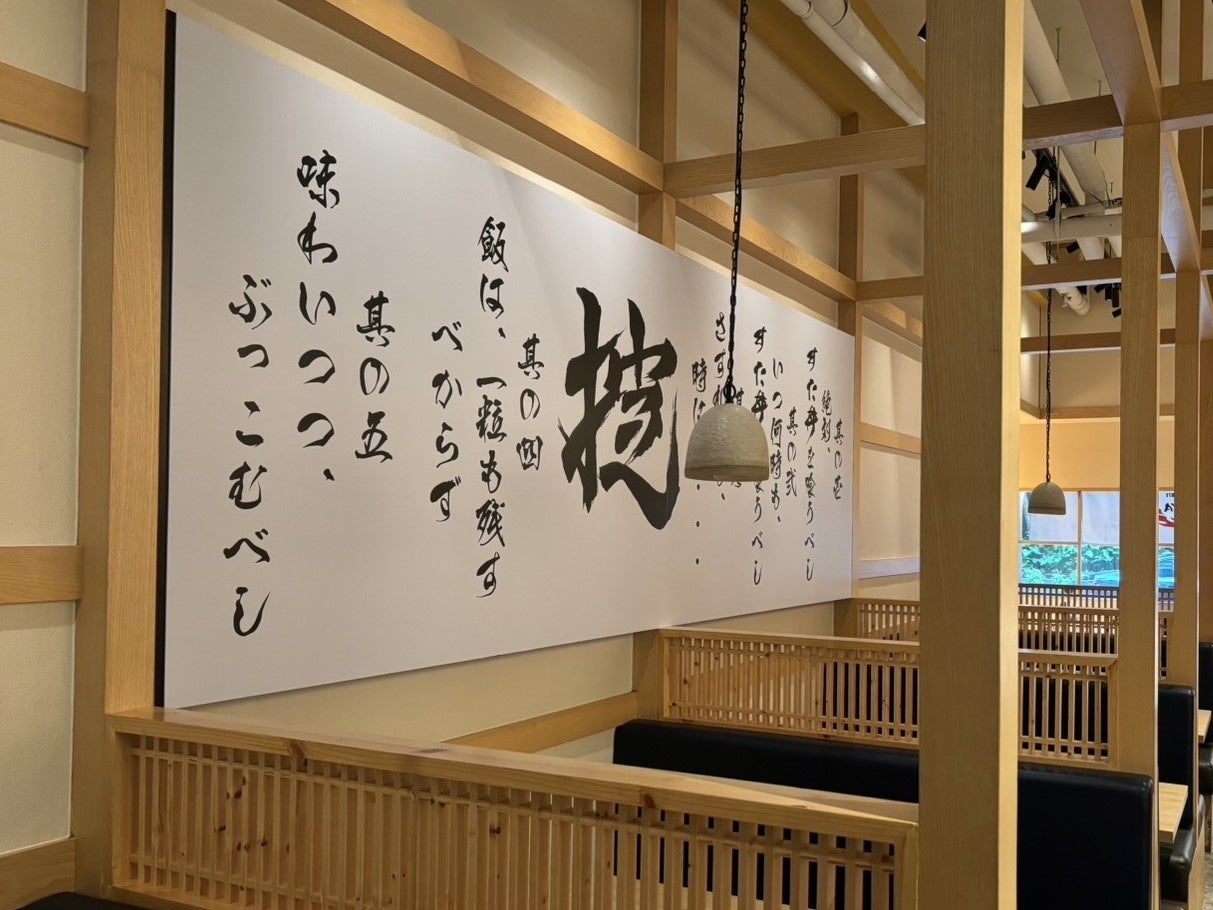 其の壱
絶対、
すた丼を喰うべし
其の弐
いつ何時も、
すた丼を喰うべし
時は・・・
掟
其の四
飯は、一粒も残す
べからず
其の五
味わいつつ、
ぶっこむべし